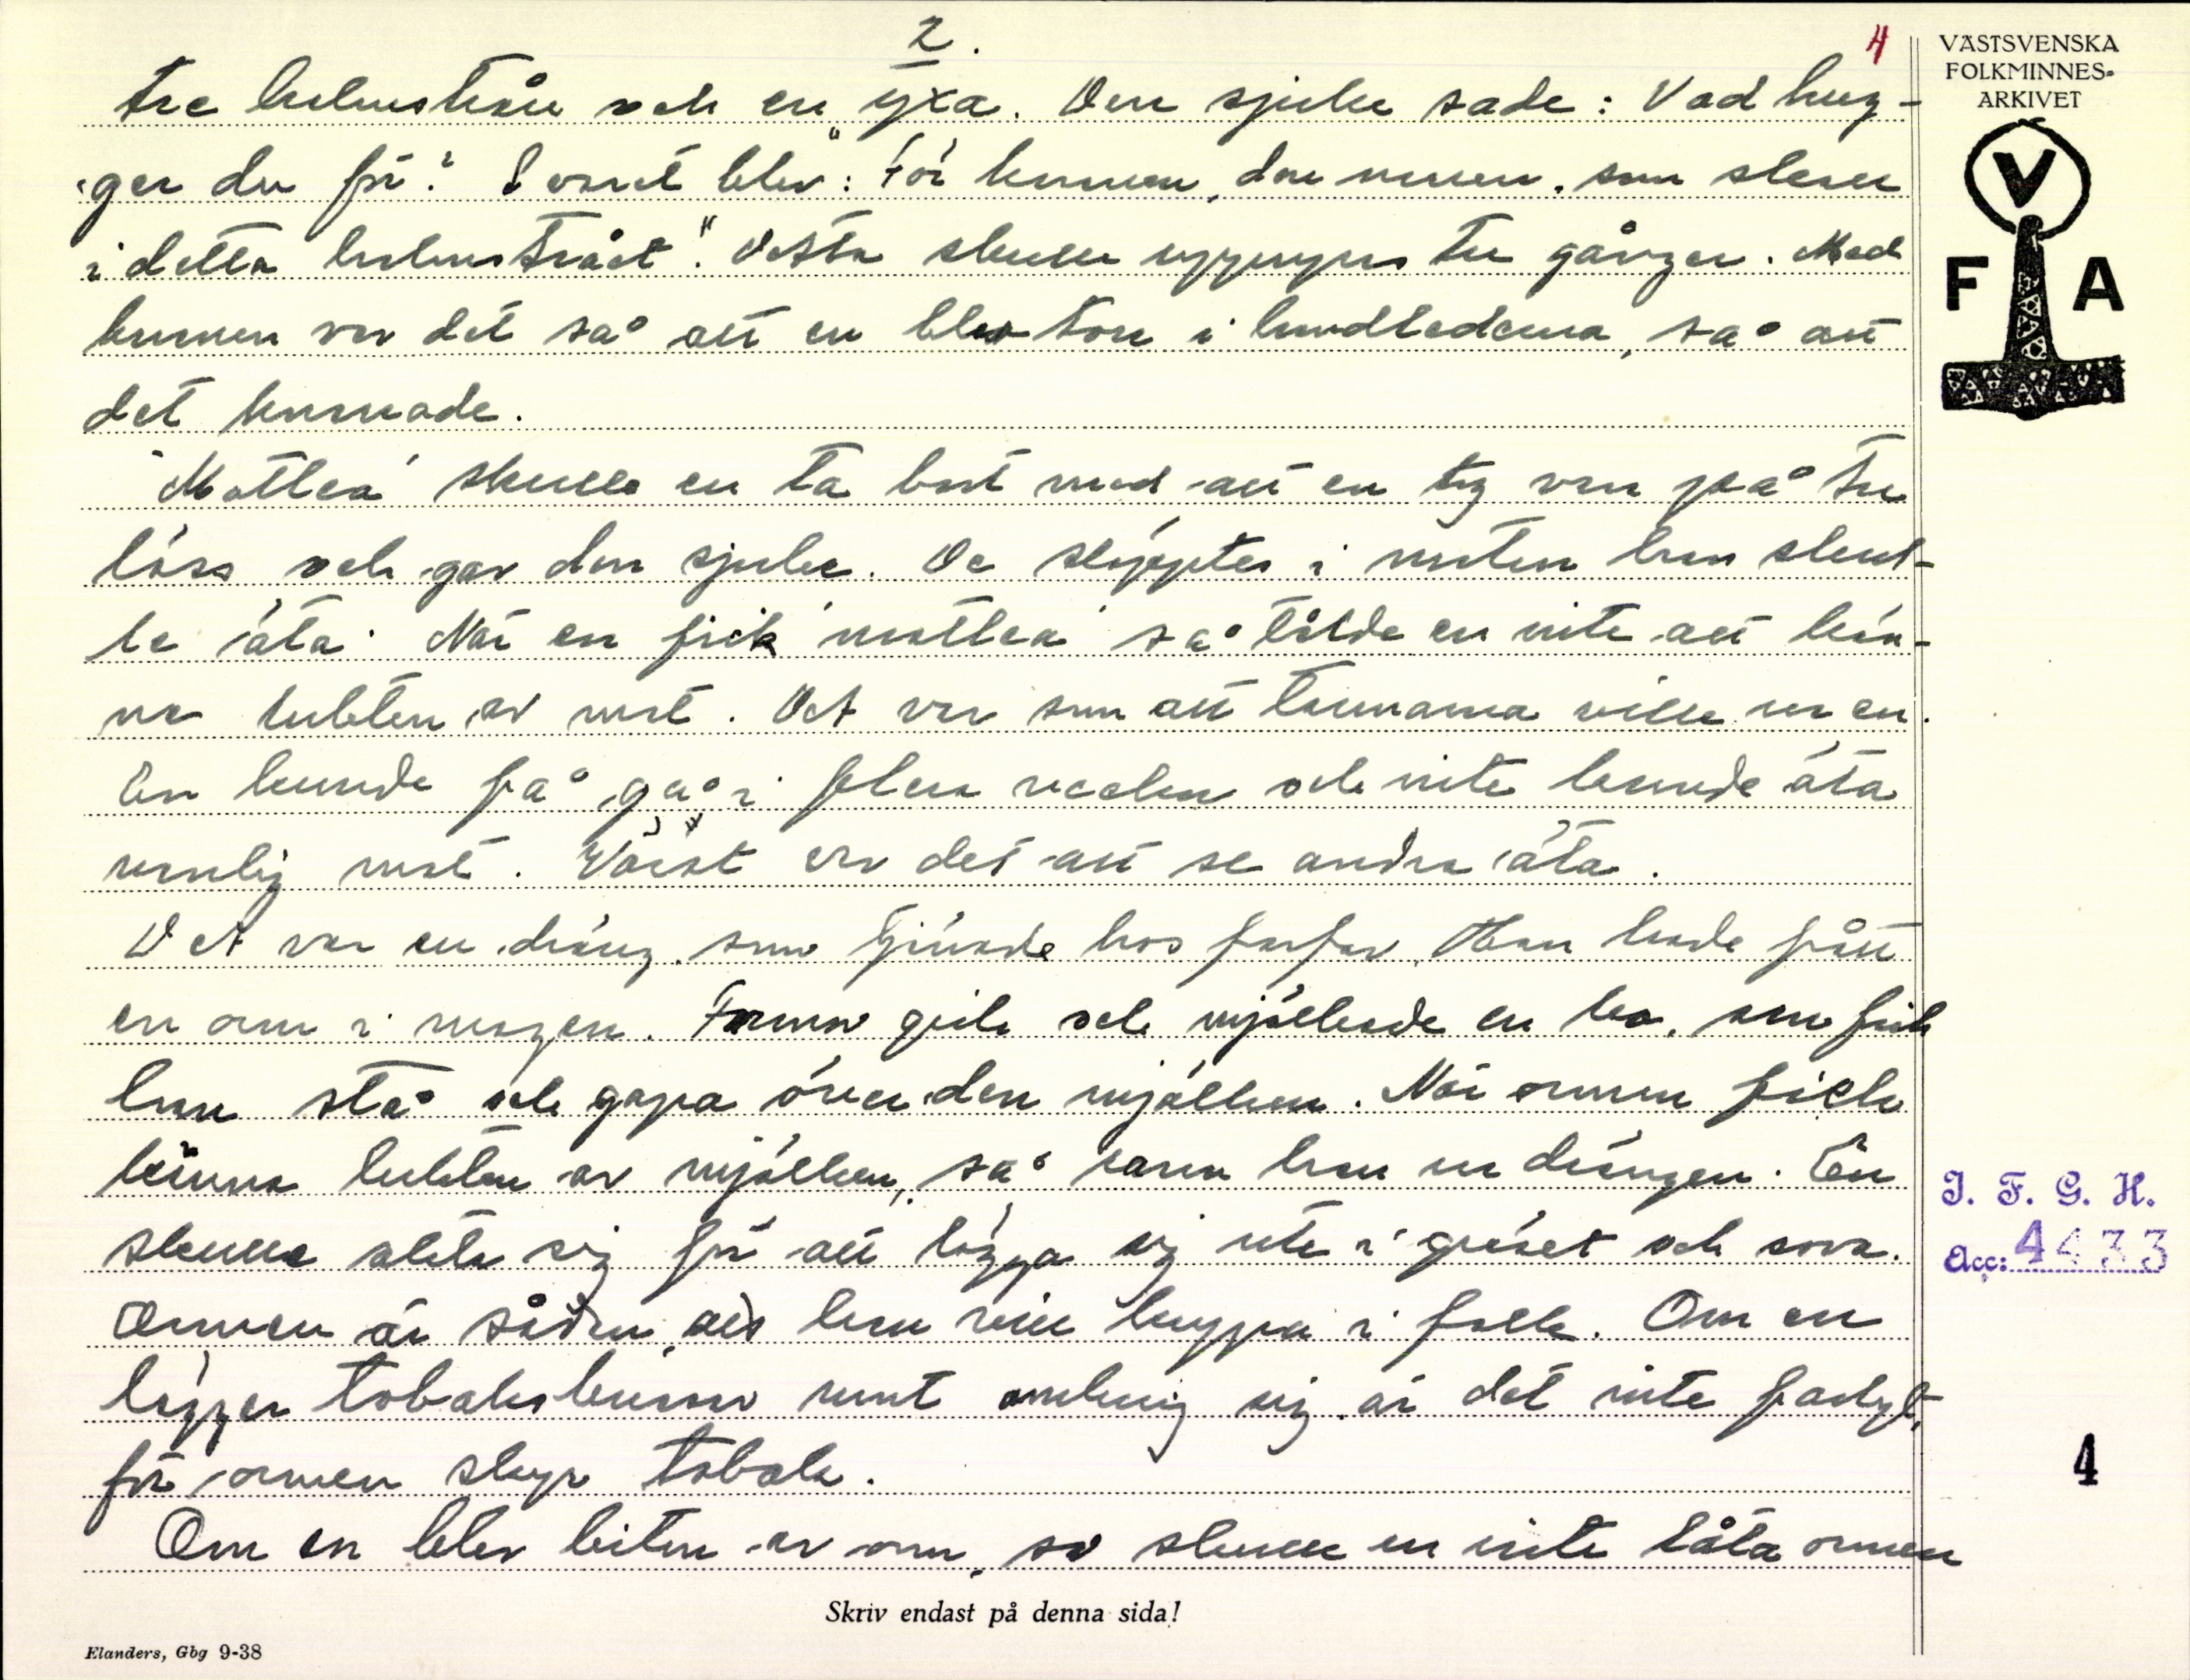 2.
4
VÄSTSVENSKA
FOLKMINNES-
ARKIVET
V
F A
tre halmstrån och en yxa. Den sjuke sade: Vad hug-
ger du för? Svaret blev: "För knarren, den narren, som skarer
i detta halmstrået". Detta skulle upprepas tre gånger. Med
knarren var det så att en blev torr i handlederna, så att
det knarrade.
"Mottlea" skulle en ta bort med att en tog var på tre
löss och gav den sjuke. De släpptes i maten han skul-
le äta. När en fick "mottlea" så tålde en inte att kän-
na lukten av mat. Det var som att tarmarna ville ur en.
En kunde få gå i flera veckor och inte kunde äta
vanlig mat. Värst var det att se andra äta.
Det var en dräng, som tjänade hos farfar. Han hade fått
en orm i magen. Farmor gick och mjölkade en ko, sen fick
han stå och gapa över den mjölken. När ormen fick
känna lukten av mjölken, så rann han ur drängen. En
skulle akta sig för att lägga sig ute i gräset och sova.
Ormen är sådan, att han vill hoppa i folk. Om en
lägger tobaksbussar runt omkring sig är det inte farligt,
för ormen skyr tobak.
Om en blev biten av orm, så skulle en inte låta ormen
J. F. G. H.
Acc: 4433
4
Skriv endast på denna sida!
Elanders, Gbg 9-38